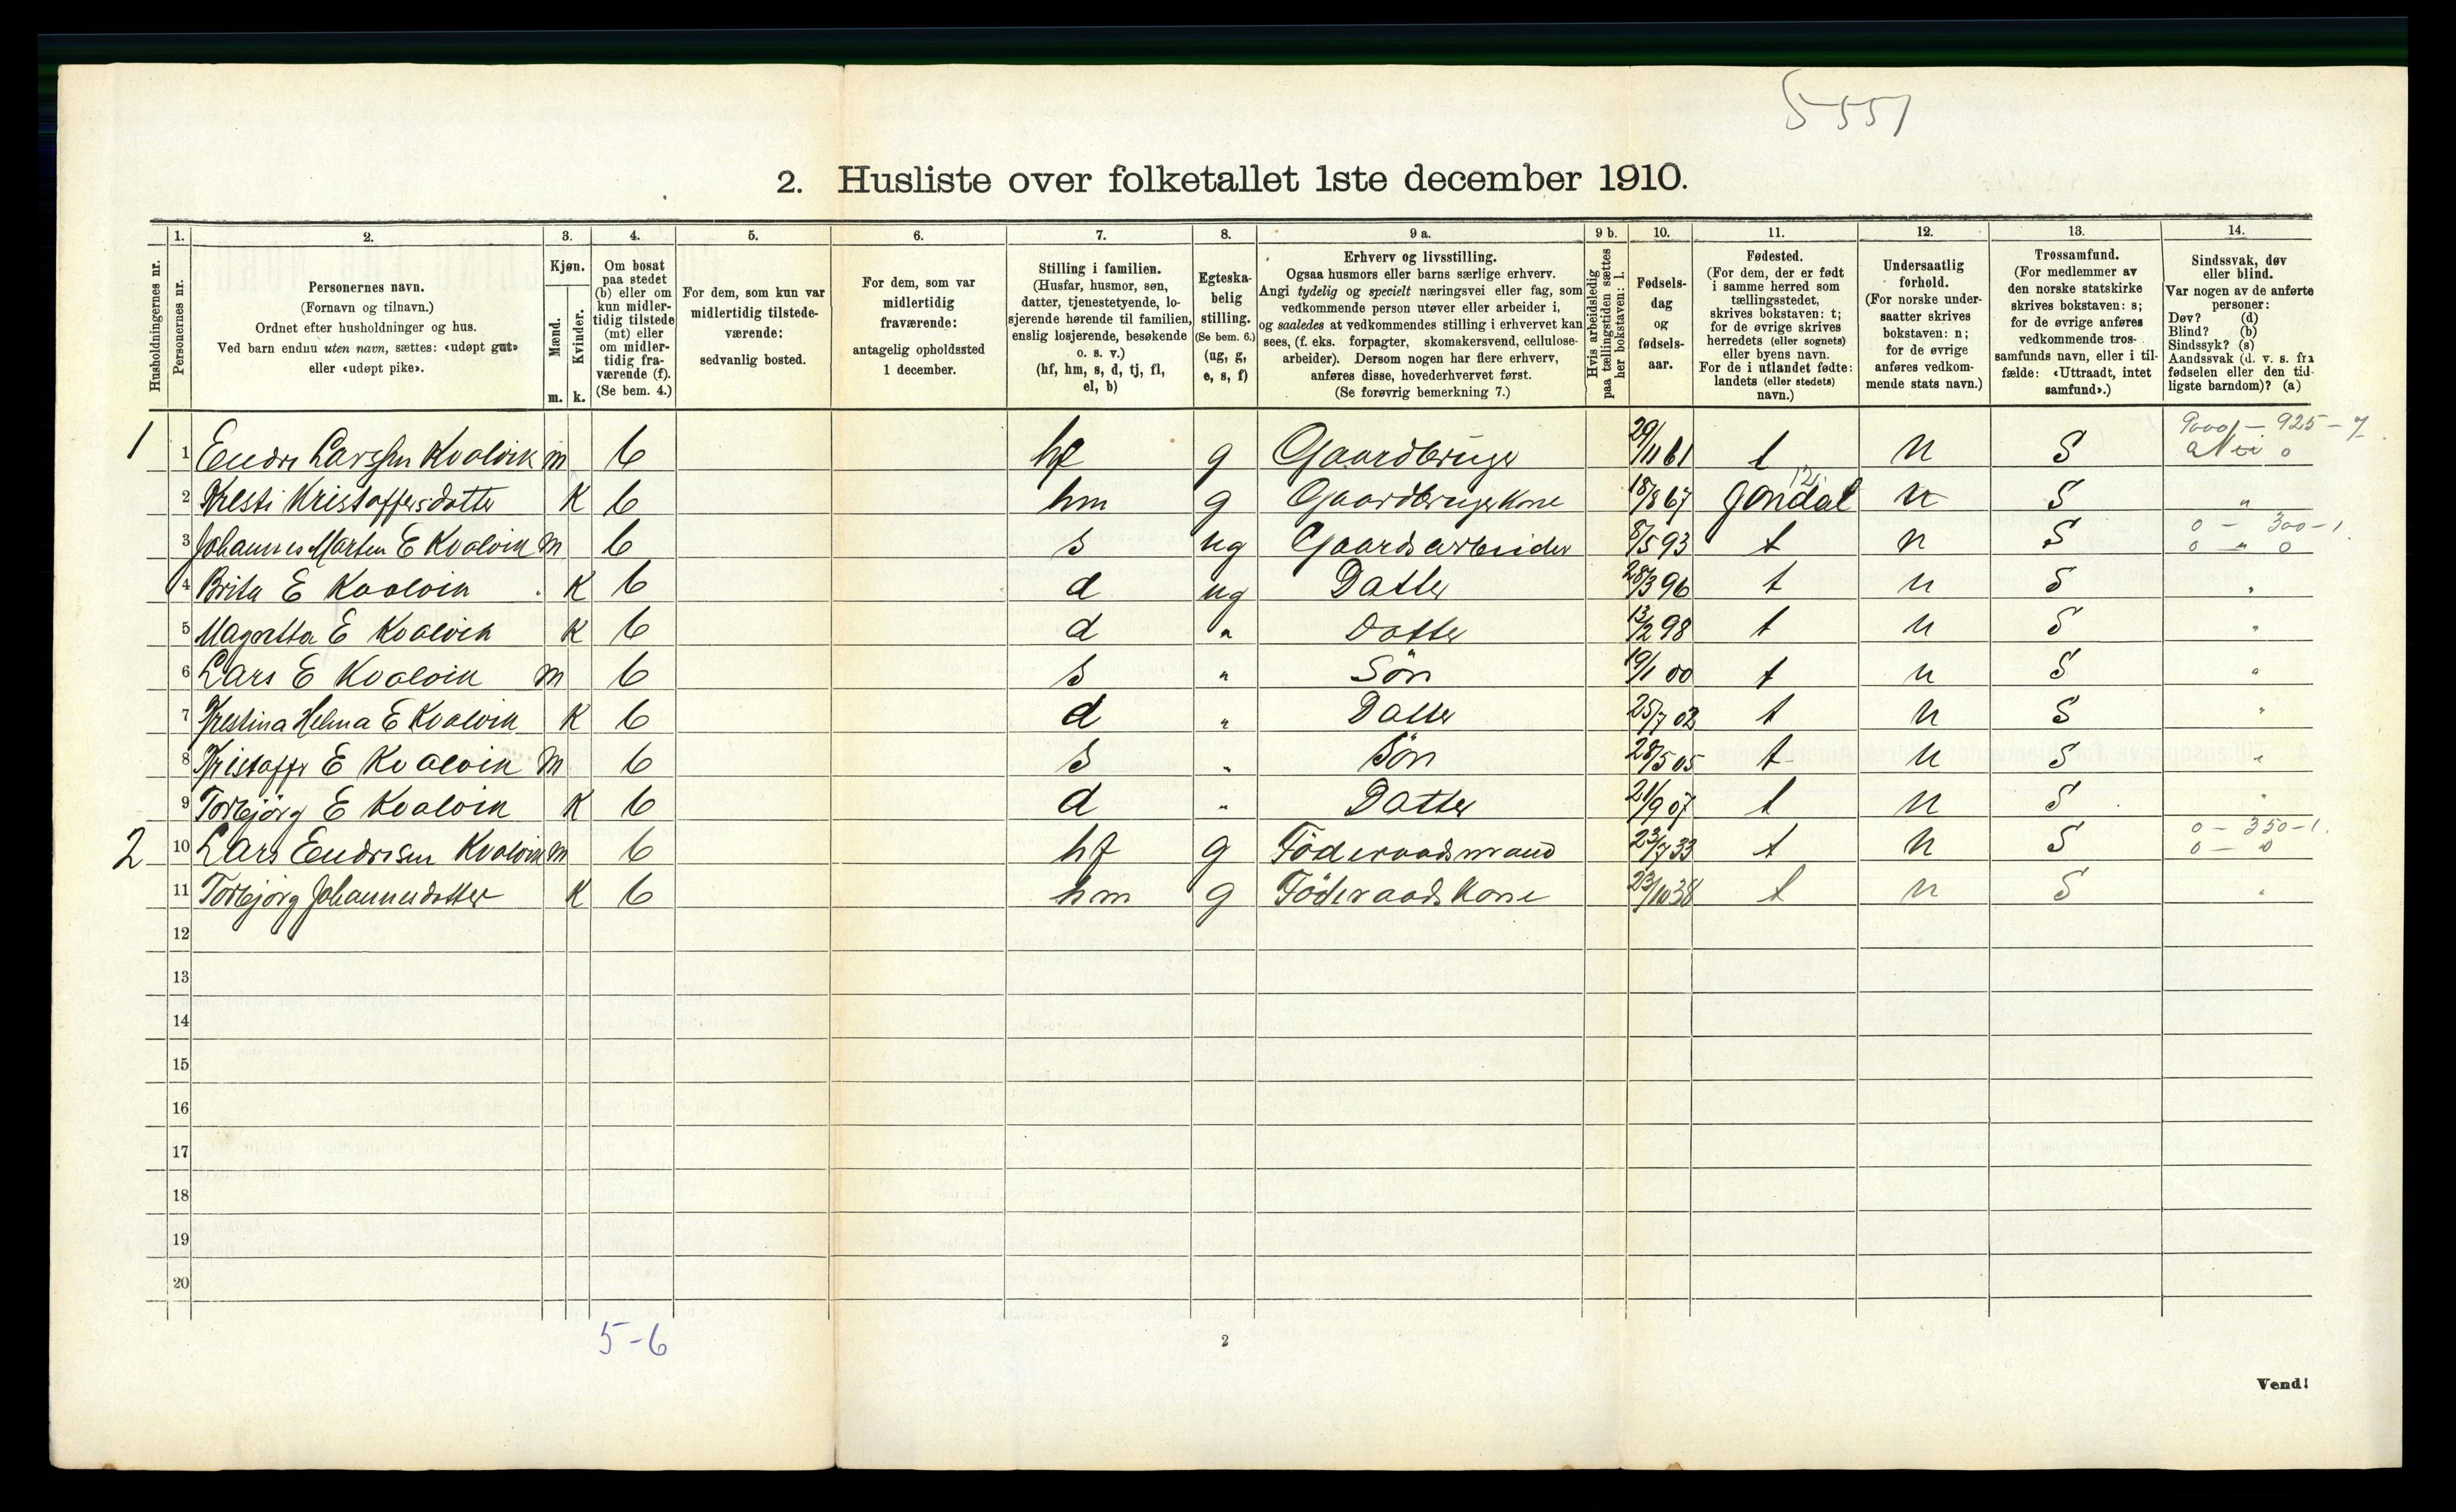 5551
2. Husliste over folketallet 1ste december 1910.
Husholdningernes nr.
1. Personernes nr.
2. Personernes navn.
(Fornavn og tilnavn.)
Ordnet efter husholdninger og hus.
Ved barn endnu uten navn, sættes: «udøpt gut»
eller «udøpt pike».
3. Kjøn.
Mænd. Kvinder.
m. k.
4. Om bosat
paa stedet
(b) eller om
kun midler-
tidig tilstede
(mt) eller
om midler-
tidig fra-
værende (f).
(Se bem. 4.)
5. For dem, som kun var
midlertidig tilstede-
værende:
sedvanlig bosted.
6. For dem, som var
midlertidig
fraværende:
antagelig opholdssted
1 december.
7. Stilling i familien.
(Husfar, husmor, søn,
datter, tjenestetyende, lo-
sjerende hørende til familien,
enslig losjerende, besøkende
o. s. v.)
(hf, hm, s, d, tj, fl,
el, b)
8. Egteska-
belig
stilling.
(Se bem. 6.)
(ug, g,
e, s, f)
9 a. Erhverv og livsstilling.
Ogsaa husmors eller barns særlige erhverv.
Angi tydelig og specielt næringsvei eller fag, som
vedkommende person utøver eller arbeider i,
og saaledes at vedkommendes stilling i erhvervet kan
sees, (f. eks. forpagter, skomakersvend, cellulose-
arbeider). Dersom nogen har flere erhverv,
anføres disse, hovederhvervet først.
(Se forøvrig bemerkning 7.)
9 b. Hvis arbeidsledig
paa tællingstiden sættes
her bokstaven: l.
10. Fødsels-
dag
og
fødsels-
aar.
11. Fødested.
(For dem, der er født
i samme herred som
tællingsstedet,
skrives bokstaven: t;
for de øvrige skrives
herredets (eller sognets)
eller byens navn.
For de i utlandet fødte:
landets (eller stedets)
navn.)
12. Undersaatlig
forhold.
(For norske under-
saatter skrives
bokstaven: n;
for de øvrige
anføres vedkom-
mende stats navn.)
13. Trossamfund.
(For medlemmer av
den norske statskirke
skrives bokstaven: s;
for de øvrige anføres
vedkommende tros-
samfunds navn, eller i til-
fælde: «Uttraadt, intet
samfund».)
14. Sindssvak, døv
eller blind.
Var nogen av de anførte
personer:
Døv? (d)
Blind? (b)
Sindssyk? (s)
Aandssvak (d. v. s. fra
fødselen eller den tid-
ligste barndom)? (a)
1 1 Endre Larssen Kvalvik m b hf g Gaardbruger 29/11 61 t n S 9000 - 925 - 7 Nei 0
2 Kresti Kristoffersdatter K b hm g Gaardbrugerkone 18/8 67 Jondal 12 n S "
3 Johannes Marten E Kvalvik m b s ug Gaardsarbeider 8/5 93 t n S 0 - 300 - 1. 0 " 0
4 Brita E Kvalvik K b d ug Datter 28/3 96 t n S "
5 Magretta E Kvalvik K b d " Datter 13/2 98 t n S "
6 Lars E Kvalvik m b s " Søn 19/1 00 t n S "
7 Krestina Helma E Kvalvik K b d " Datter 25/7 02 t n S "
8 Kristoffer E Kvalvik m b s " Søn 28/5 05 t n S "
9 Torbjörg E Kvalvik K b d " Datter 21/9 07 t n S "
2 10 Lars Endresen Kvalvik m b hf g Föderaadsmand 23/7 33 t n S 0 - 350 - 1. 0 - 0
11 Torbjörg Johannesdatter K b hm g Föderaadskone 23/10 38 t n S "
12
13
14
15
16
17
18
19
20
5-6
2
Vend!